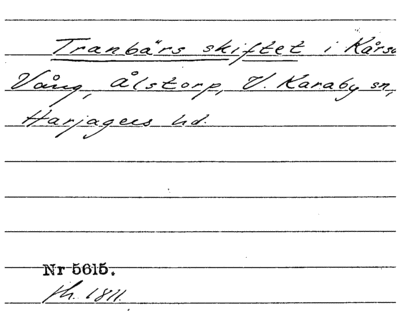 Tranbärs skiftet i Kårsa
Vång, Ålstorp, V. Karaby sn,
Harjagers hd.
Nr 5615.
1811.